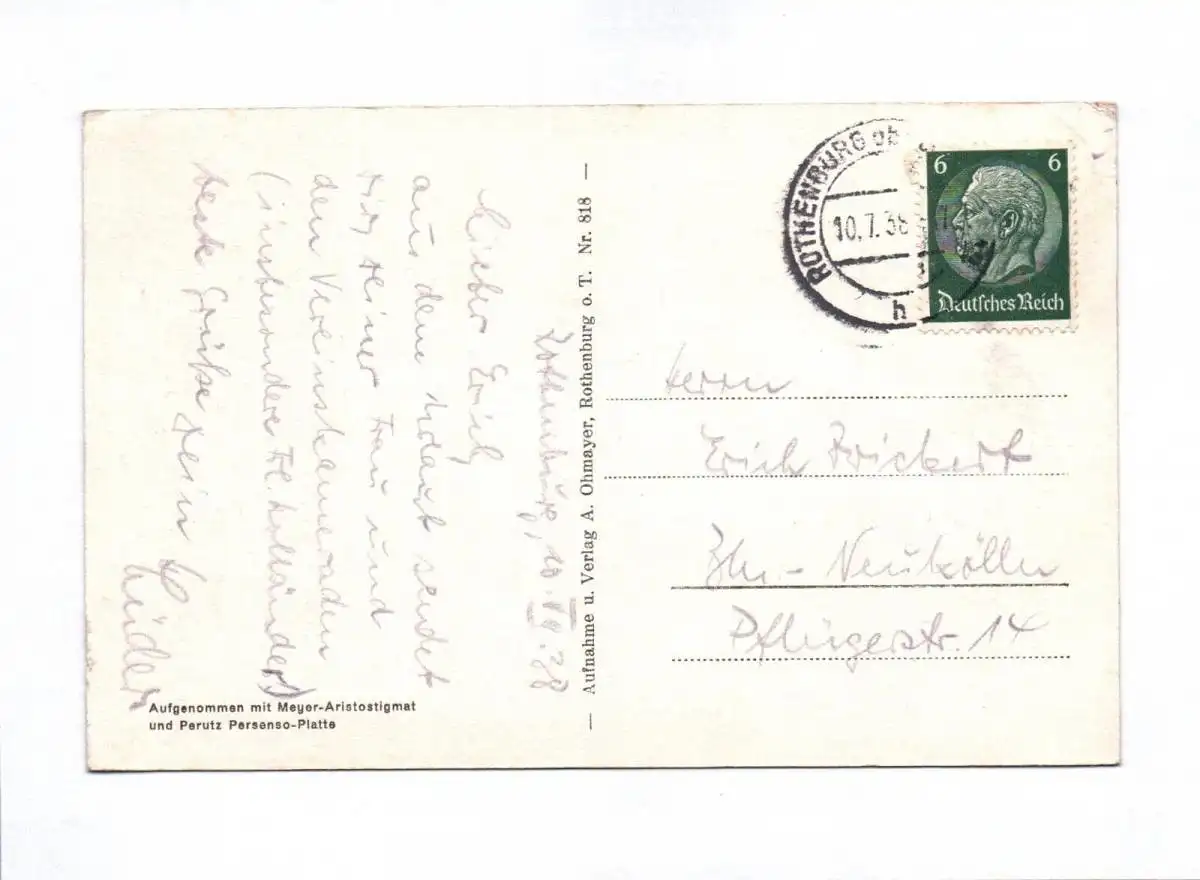 Rothenburg, 10. VII. 38
Lieber Erich,
aus dem Urlaub sendet
Dir, Deiner Frau und
den Vereinskameraden
(insbesondere
beste Grüße Dein
Aufgenommen mit Meyer-Aristostigmat
und Perutz Persenso-Platte
— Aufnahme u. Verlag A. Ohmayer, Rothenburg o. T. Nr. 818 —
ROTHENBURG ob
10.7.38
h
6 6
Deutsches Reich
Herrn
Erich Brickert
Bln.-Neukölln
Pflügerstr. 14